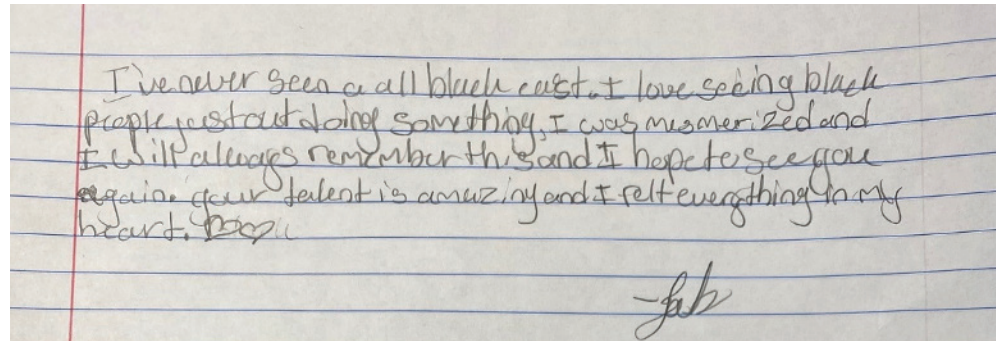 I've never seen a all black cast. I love seeing black
people just out doing something, I was mesmerized and
I will always remember this and I hope to see you
again. your talent is amazing and I felt everything in my
heart.